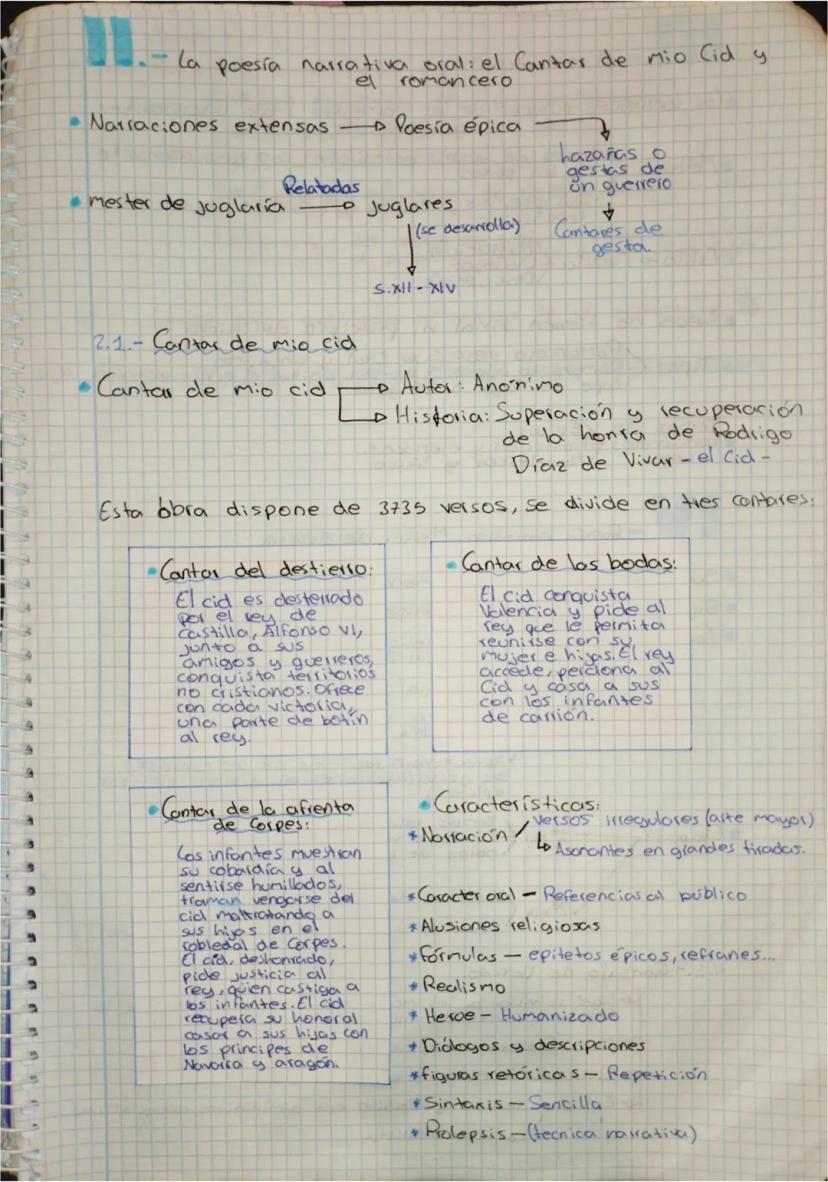 II.- La poesía narrativa oral: el Cantar de mio Cid y
el romancero
• Narraciones extensas → Poesía épica →
hazañas o
gestas de
un guerrero
↓
Cantares de
gesta.
• mester de juglaría → Relatadas juglares
(se desarrolla)
↓
S.XII - XIV
2.1.- Cantar de mio cid
• Cantar de mio cid → Autor: Anónimo
→ Historia: Superación y recuperación
de la honra de Rodrigo
Díaz de Vivar - el Cid -
Esta obra dispone de 3735 versos, se divide en tres cantares:
• Cantar del destierro:
El cid es desterrado
por el rey de
Castilla, Alfonso VI,
junto a sus
amigos y guerreros,
conquista territorios
no cristianos. Ofrece
con cada victoria,
una parte de botín
al rey.
• Cantar de las bodas:
El cid conquista
Valencia y pide al
rey que le permita
reunirse con su
mujer e hijas. El rey
accede, perdona al
Cid y casa a sus
con los infantes
de carrión.
• Cantar de la afrenta
de Corpes:
Los infantes muestran
su cobardía y al
sentirse humillados,
traman vengarse del
cid maltratando a
sus hijas en el
robledal de Corpes.
El cid, deshonrado,
pide justicia al
rey, quien castiga a
los infantes. El cid
recupera su honor al
casar a sus hijas con
los principes de
Navarra y aragón.
• Características:
* Narración / versos irregulares (arte mayor)
↳ Asonantes en grandes tiradas.
* Caracter oral - Referencias al público
* Alusiones religiosas
* Fórmulas - epítetos épicos, refranes...
* Realismo
* Heroe - Humanizado
* Diálogos y descripciones
* figuras retóricas - Repetición
* Sintaxis - Sencilla
* Prolepsis - (tecnica narrativa)